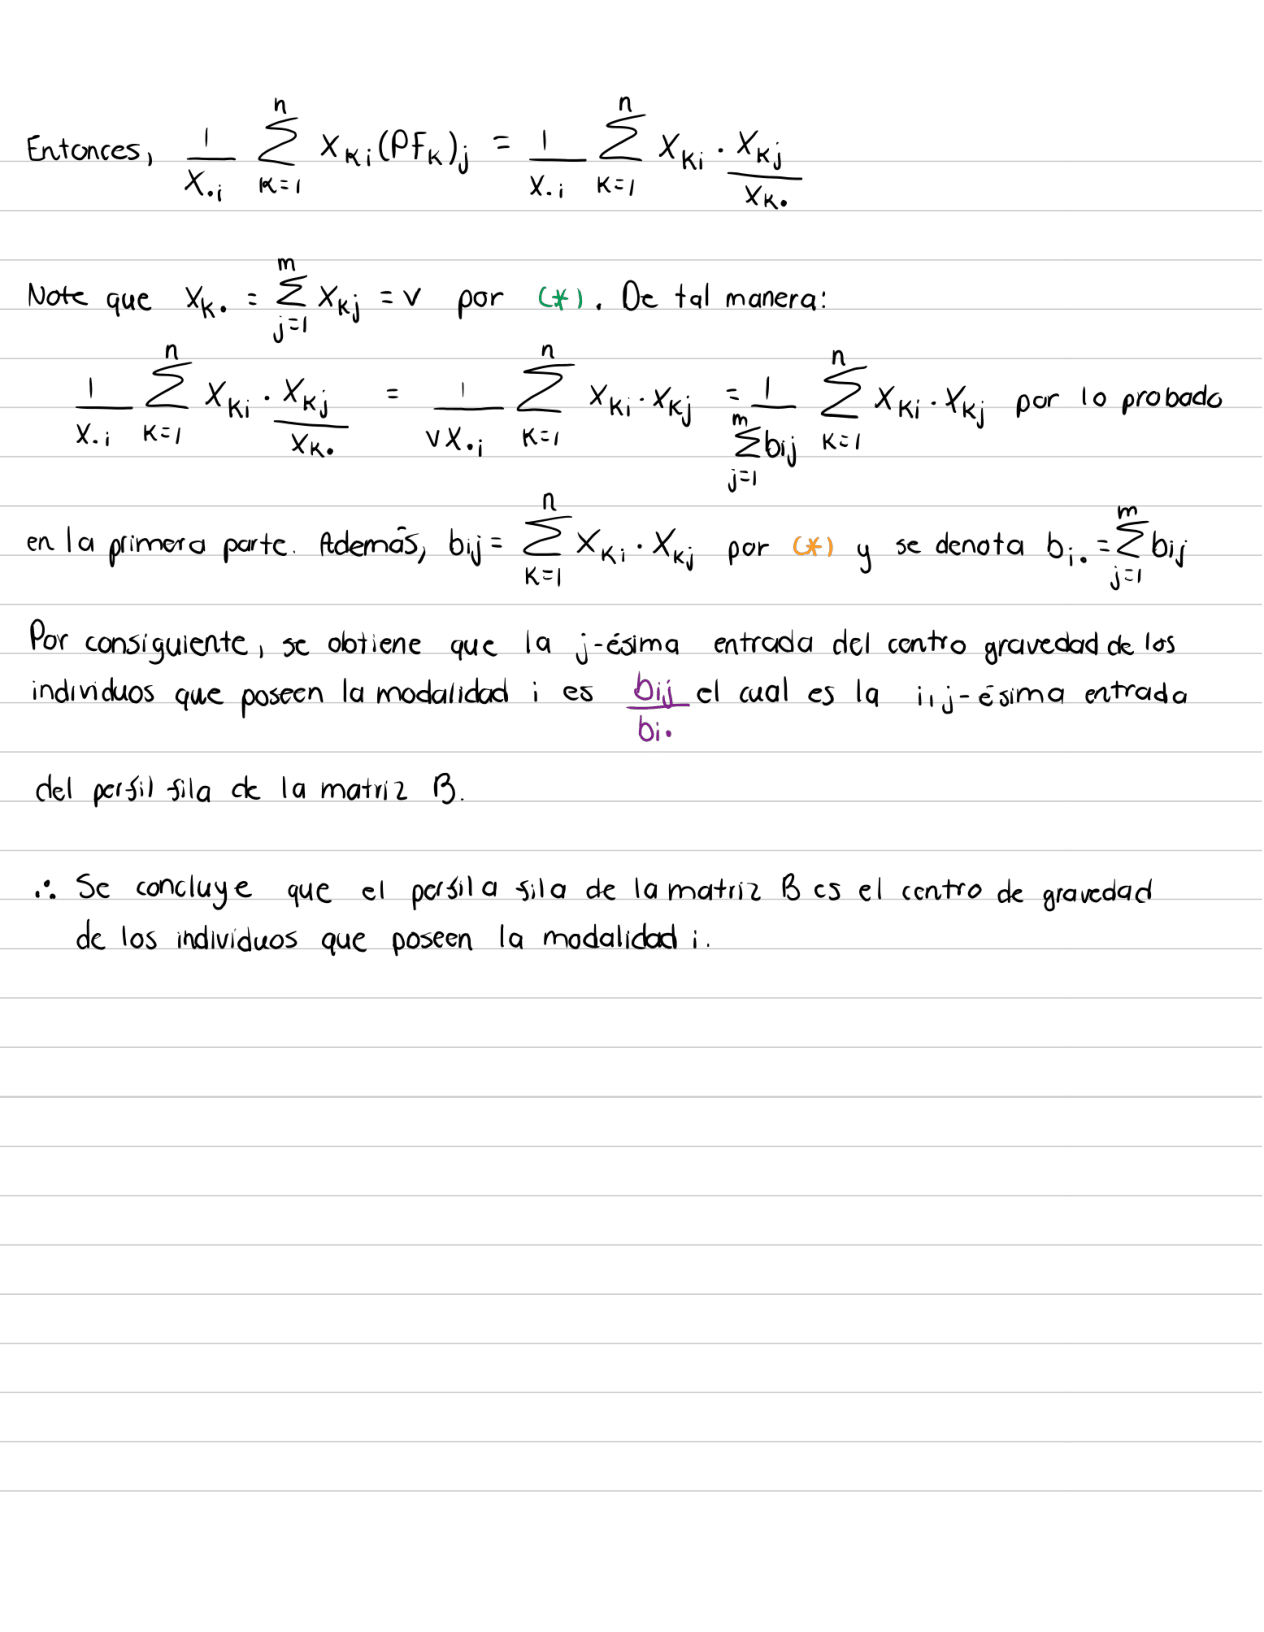 Entonces, \frac{1}{x_{\cdot i}} \sum_{k=1}^{n} x_{ki} (PF_k)_j = \frac{1}{x_{\cdot i}} \sum_{k=1}^{n} x_{ki} \cdot \frac{x_{kj}}{x_{k\cdot}}
Note que x_{k\cdot} = \sum_{j=1}^{m} x_{kj} = v por (*). De tal manera:
\frac{1}{x_{\cdot i}} \sum_{k=1}^{n} x_{ki} \cdot \frac{x_{kj}}{x_{k\cdot}} = \frac{1}{v x_{\cdot i}} \sum_{k=1}^{n} x_{ki} \cdot x_{kj} = \frac{1}{\sum_{j=1}^{m} b_{ij}} \sum_{k=1}^{n} x_{ki} \cdot x_{kj} por lo probado
en la primera parte. Además, b_{ij} = \sum_{k=1}^{n} x_{ki} \cdot x_{kj} por (*) y se denota b_{i\cdot} = \sum_{j=1}^{m} b_{ij}
Por consiguiente, se obtiene que la j-ésima entrada del centro gravedad de los
individuos que poseen la modalidad i es \frac{b_{ij}}{b_{i\cdot}} el cual es la i,j-ésima entrada
del perfil fila de la matriz B.
∴ Se concluye que el perfila fila de la matriz B es el centro de gravedad
de los individuos que poseen la modalidad i.